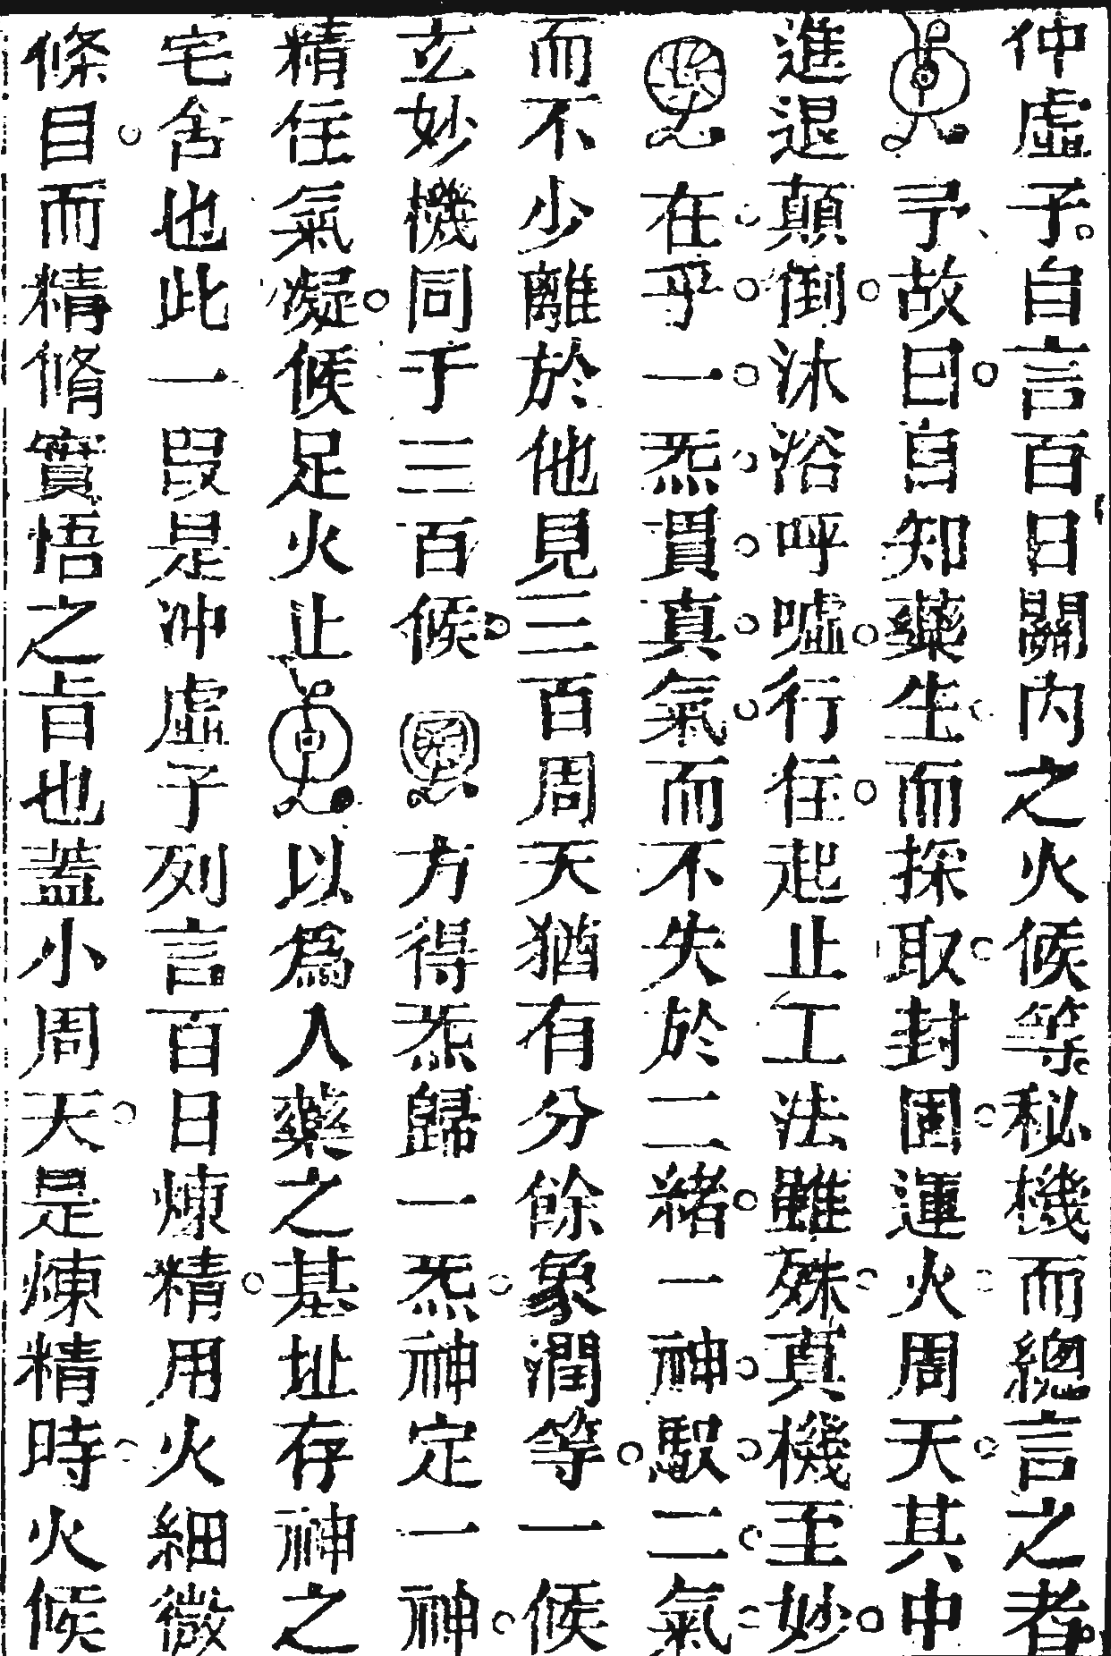 仲虛子自言百日關內之火候等秘機而總言之者
予故曰自知藥生而採取封固運火周天其中
進退顛倒沐浴呼噓行住起止工法雖殊真機至妙
在乎一炁貫真氣而不失於二緒一神馭二氣
而不少離於他見三百周天猶有分餘象潤等一候
玄妙機同于三百候方得炁歸一炁神定一神
精住氣凝候足火止以為入藥之基址存神之
宅舍也此一叚是冲虛子列言百日煉精用火細微
條目而精脩實悟之旨也蓋小周天是煉精時火候